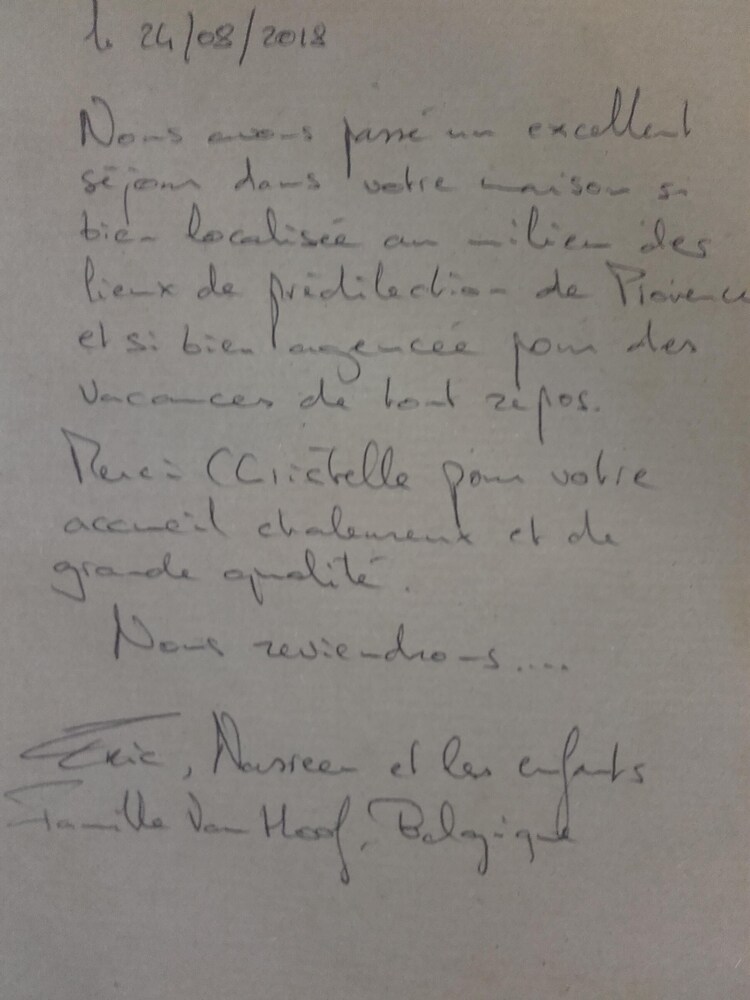 le 24/08/2018
Nous avons passé un excellent
séjour dans votre maison si
bien localisée au milieu des
lieux de prédilection de Provence
et si bien agencée pour des
vacances de tout repos.
Merci Christelle pour votre
accueil chaleureux et de
grande qualité.
Nous reviendrons....
Eric, et les enfants
Famille Van Hoof, Belgique